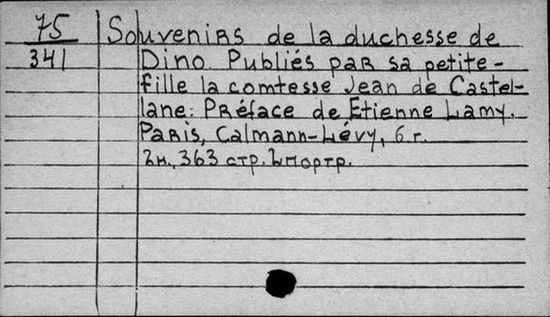 75 Souvenirs de la duchesse de
341 Dino Publiés par sa petite-
fille la comtesse Jean de Castel-
lane. Préface de Etienne Lamy.
Paris, Calmann-Lévy, б г.
2н, 363 стр. 2портр.